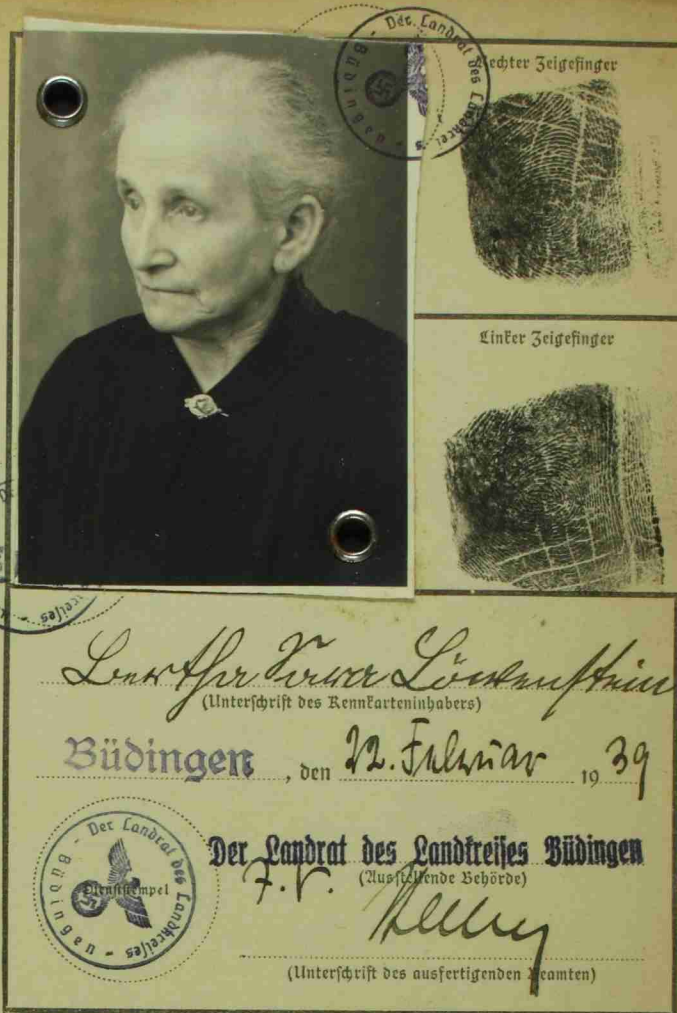 Der Landrat des Landkreises - Büdingen -
Rechter Zeigefinger
Linker Zeigefinger
Bertha Sara Löwenstein
(Unterschrift des Kennkarteninhabers)
Büdingen, den 22. Februar 1939
Der Landrat des Landkreises - Büdingen -
Dienststempel
Der Landrat des Landkreises Büdingen
(Ausstellende Behörde)
J. V.
(Unterschrift des ausfertigenden Beamten)